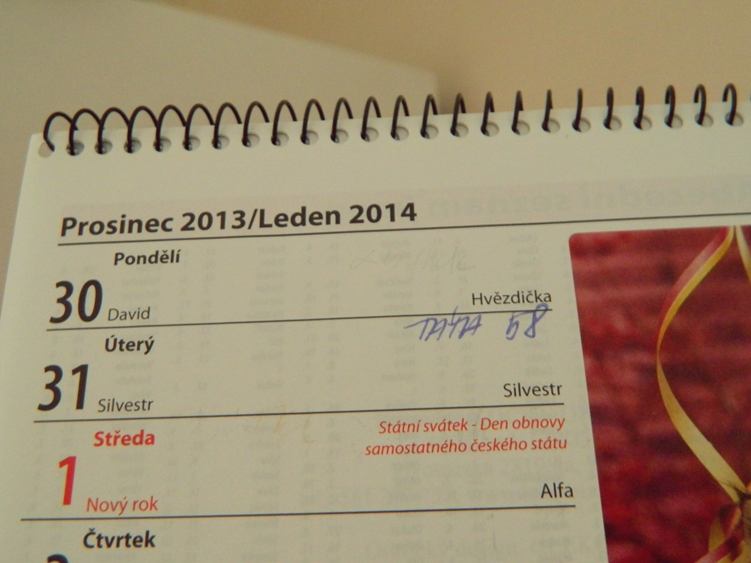 Prosinec 2013/Leden 2014
Pondělí
30 David Hvězdička
Úterý TÁTA 58
31 Silvestr Silvestr
Středa Státní svátek - Den obnovy
samostatného českého státu
1 Nový rok Alfa
Čtvrtek